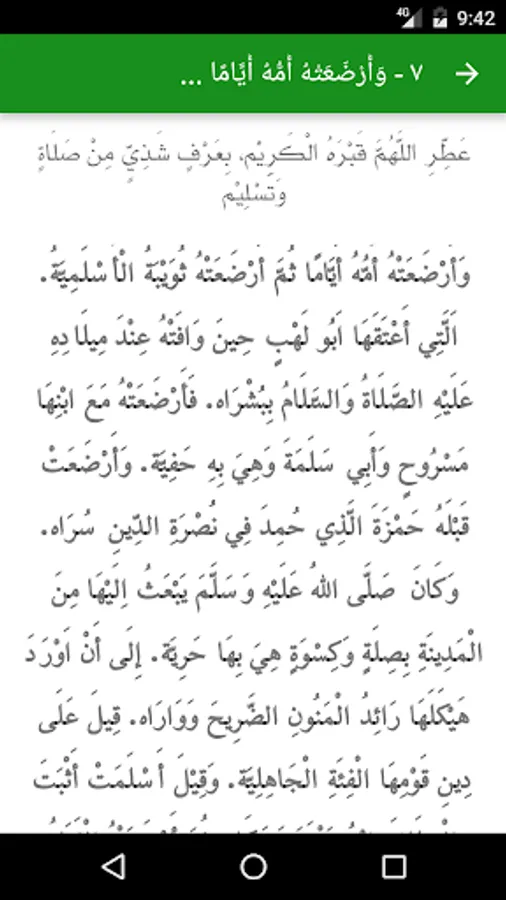 4G 9:42
٧ - وَأَرْضَعَتْهُ أُمُّهُ أَيَّامًا ...
عَطِّرِ اللَّهُمَّ قَبْرَهُ الْكَرِيْم، بِعَرْفٍ شَذِيٍّ مِنْ صَلَاةٍ
وَتَسْلِيْم
وَأَرْضَعَتْهُ أُمُّهُ أَيَّامًا ثُمَّ أَرْضَعَتْهُ ثُوَيْبَةُ الْأَسْلَمِيَّةُ.
اَلَّتِي أَعْتَقَهَا اَبُو لَهْبٍ حِينَ وَافَتْهُ عِنْدَ مِيلَادِهِ
عَلَيْهِ الصَّلَاةُ وَالسَّلَامُ بِبُشْرَاه. فَأَرْضَعَتْهُ مَعَ ابْنِهَا
مَسْرُوحٍ وَأَبِي سَلَمَةَ وَهِيَ بِهِ حَفِيَّة. وَأَرْضَعَتْ
قَبْلَهُ حَمْزَةَ الَّذِي حُمِدَ فِي نُصْرَةِ الدِّينِ سُرَاه.
وَكَانَ صَلَّى اللهُ عَلَيْهِ وَسَلَّمَ يَبْعَثُ اِلَيْهَا مِنَ
الْمَدِينَةِ بِصِلَةٍ وَكِسْوَةٍ هِيَ بِهَا حَرِيَّة. إِلَى أَنْ اَوْرَدَ
هَيْكَلَهَا رَائِدُ الْمَنُونِ الضَّرِيحَ وَوَارَاه. قِيلَ عَلَى
دِينِ قَوْمِهَا الْفِئَةِ الْجَاهِلِيَّة. وَقِيْلَ أَسْلَمَتْ أَثْبَتَ